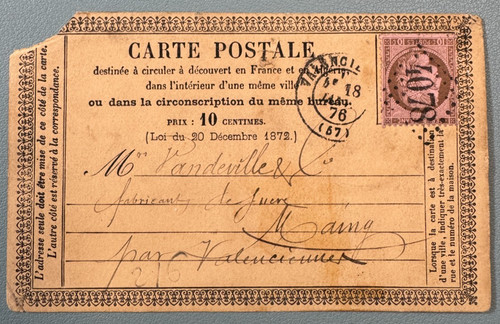 CARTE POSTALE
destinée à circuler à découvert en France et en Algérie
dans l'intérieur d'une même ville
ou dans la circonscription du même bureau.
PRIX : 10 CENTIMES.
(Loi du 20 Décembre 1872.)
18
76
(57)
4078
L'adresse seule doit être mise de ce côté de la carte.
L'autre côté est réservé à la correspondance.
Mrs Vandeville & Cie
fabricants de sucre
Maing
par Valenciennes
Lorsque la carte est à destination
d'une ville, indiquer très-exactement la
rue et le numéro de la maison.